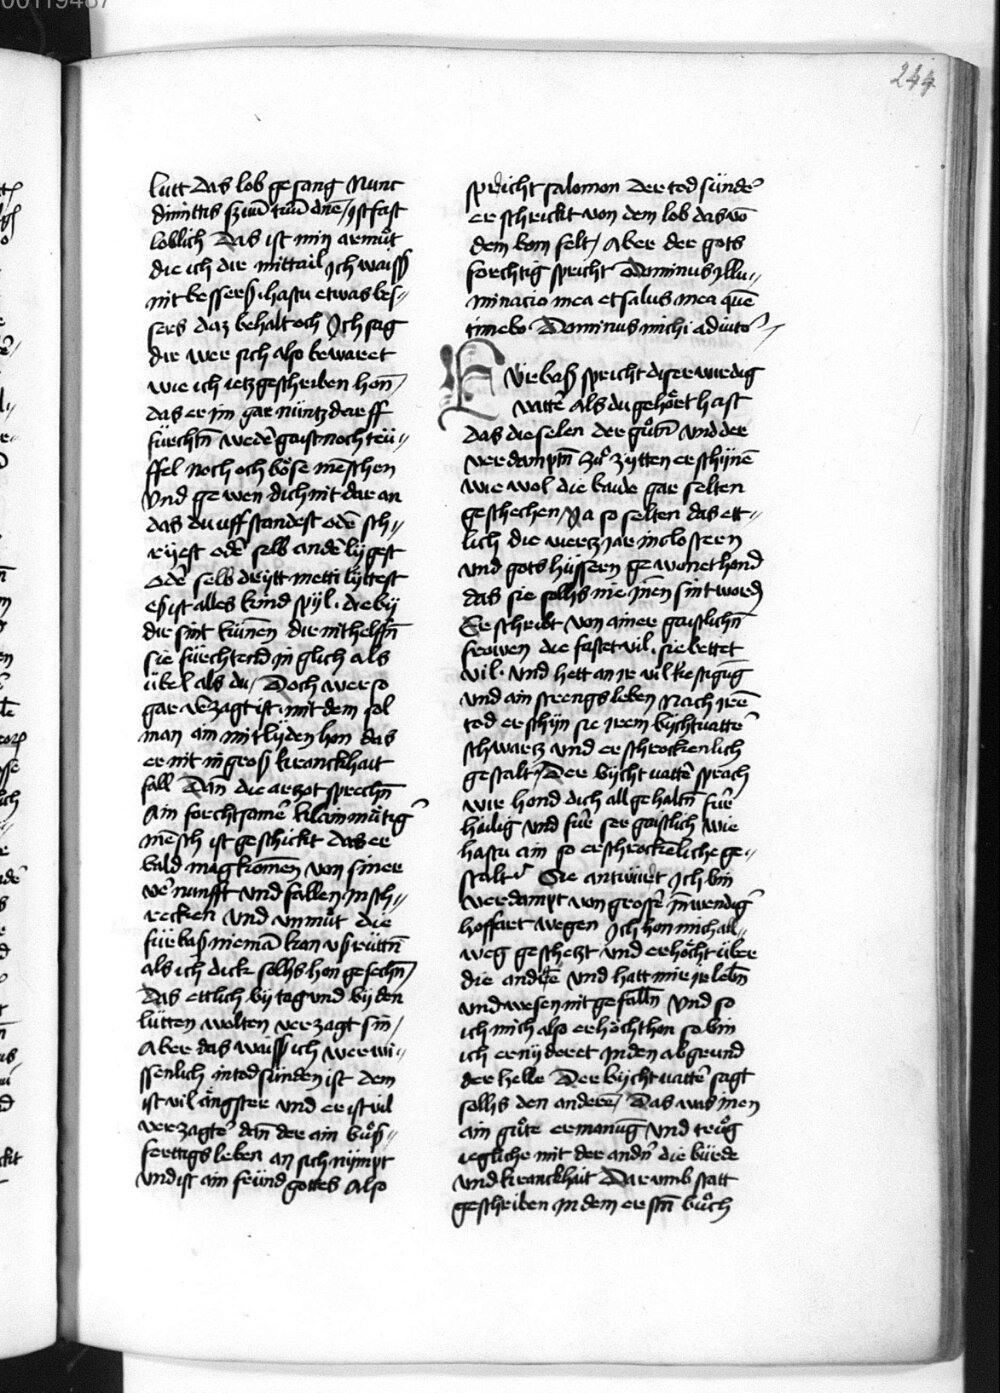 00119487
244
lutt das lob gesang Nunc
dimittis ſzuū tuū dnē / ist fast
loblich Das ist min armuͦt
die ich dir mittail Ich waiſſ
nit bessers hastu etwas bes„
sers daz behalt och Ich sag
dir wer sich also bewaret
wie ich ietz geschriben hon /
das er im gar nüntz darff
fürchtn̄ wedē gaist noch teü„
ffel noch och boͤse mēschen
Vnd gewen dich nit dar an
das du uff standest odē sch„
rijest odē selb andē lijgest
odē selb drytt metti lyttest
eß ist alles kind spyl. die by
dir sint kūnen dir nit helffn̄
sie fürchtend in glich als
übel als du / Doch wer so
gar vēzagt ist mit dem sol
man ain mitlyden hon das
er nit in groß kranckhait
fall Dān die arzot sprechn̄
Ain forchtsamē klainmuͤtigē
mēsch ist geschickt das er
bald mag komen von siner
vēnunfft vnd fallen in sch„
recken vnd vnmuͦt die
fürbaß niemā kan vßrüttn̄
als ich dick sollhs hon gesechn̄ /
Das ettlich by tag vnd by den
lütten wolten verzagt sin /
Aber das waiſſ ich wer wi„
ssenlich in todsünden ist dem
ist vil ängster vnd er ist vil
verzagtē dān der ain buͦß„
fertigs leben an sich nympt
vnd ist ain fründ gottes Also
spricht salomon Der tod sündē
erschrickt von dem lob das vō
dem bom felt / Aber der gots
forchtig spricht Dominus Illu„
minacio mea et salus mea quē
timebo Dominus michi adiutō /
Fürbaß spricht diser wirdig
vattē als du gehoͤrt hast
das die selen der guͦtn̄ vnd der
verdamptn̄ zuͦ zytten erschinē
wie wol die baide gar selten
geschechen / Ja so selten das ett„
lich die viertz jar in clostern
vnd gots hüssern gewonet hond
das sie sollhs nie inen sint word
Er schribt von ainer gaistlichn̄
frowen die fastet vil. sie bettet
vil. vnd hett an ir vil kestigūg
vnd ain strengs leben Nach irē
tod erschijn sie irem bychtuattē
schwartz vnd erschrockenlich
gestalt / Der bycht uattē sprach
wir hond dich all gehaltn̄ für
hailig vnd für ser gaistlich wie
hastu ain so erschrockēliche ge„
stalt Sie antwürt Ich bin
verdampt von grossē inwendigē
hoffart wegen Ich hon mich all„
weg geschetzt vnd erhoͤcht über
die andrē vnd hatt mir ir lebn̄
vnd wesen nit gefalln̄ Vnd so
ich mich also erhoͤcht hon so bin
ich ernijderet in den abgrund
der helle Der bycht uattē sagt
sollhs den anderē / Das was inen
ain guͦte ermanūg vnd truͦg
iegliche mit der andn̄ die bürde
vnd kranckhait Darumb statt
geschriben in dem erstn̄ buͦch